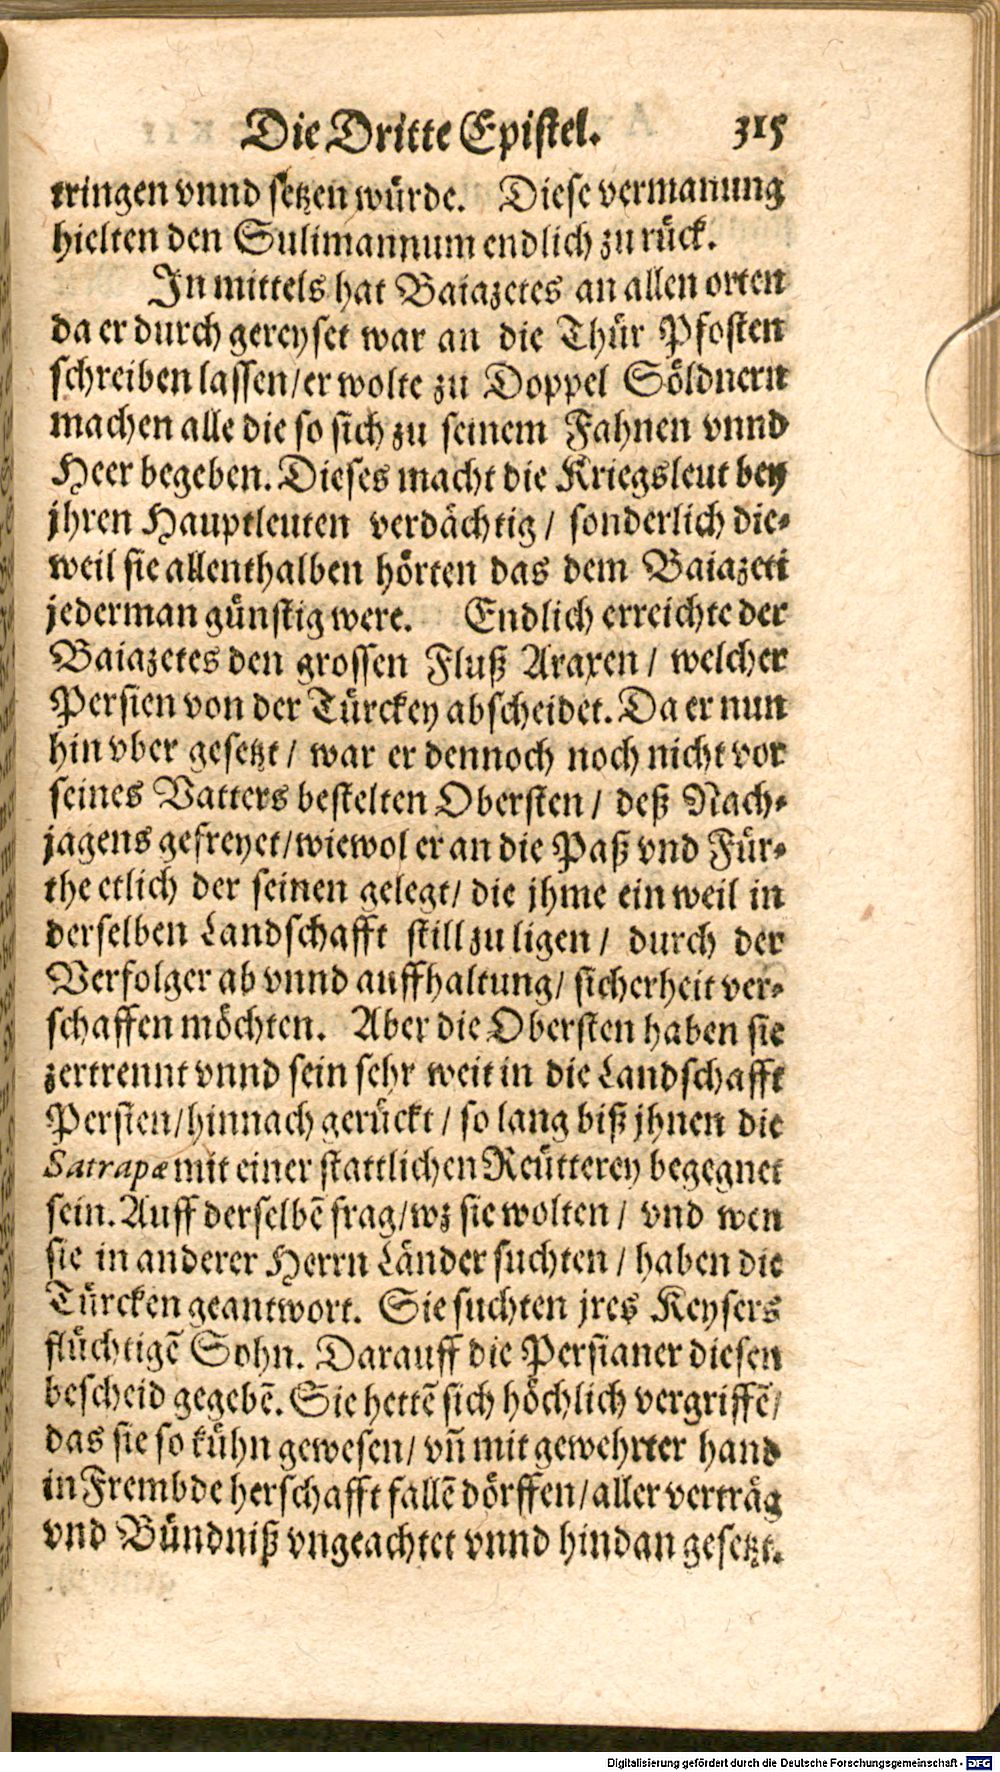 Die Dritte Epistel. 315
tringen vnnd setzen würde. Diese vermanung
hielten den Sulimannum endlich zu rück.
In mittels hat Baiazetes an allen orten
da er durch gereyset war an die Thür Pfosten
schreiben lassen/er wolte zu Doppel Söldnern
machen alle die so sich zu seinem Fahnen vnnd
Heer begeben. Dieses macht die Kriegsleut bey
jhren Hauptleuten verdächtig / sonderlich die-
weil sie allenthalben hörten das dem Baiazeti
jederman günstig were. Endlich erreichte der
Baiazetes den grossen Fluß Araxen / welcher
Persien von der Türckey abscheidet. Da er nun
hin vber gesetzt / war er dennoch noch nicht vor
seines Vatters bestelten Obersten / deß Nach-
jagens gefreyet/wiewol er an die Paß vnd Für-
the etlich der seinen gelegt/ die jhme ein weil in
derselben Landschafft still zu ligen / durch der
Verfolger ab vnnd auffhaltung/ sicherheit ver-
schaffen möchten. Aber die Obersten haben sie
zertrennt vnnd sein sehr weit in die Landschafft
Persien/hinnach gerückt / so lang biß jhnen die
Satrapæ mit einer stattlichen Reütterey begegnet
sein. Auff derselbē frag/wz sie wolten / vnd wen
sie in anderer Herrn Länder suchten / haben die
Türcken geantwort. Sie suchten jres Keysers
flüchtigē Sohn. Darauff die Persianer diesen
bescheid gegebē. Sie hettē sich höchlich vergriffē/
das sie so kühn gewesen/ vn̄ mit gewehrter hand
in Frembde herschafft fallē dörffen/aller verträg
vnd Bündniß vngeachtet vnnd hindan gesetzt.
Digitalisierung gefördert durch die Deutsche Forschungsgemeinschaft - DFG